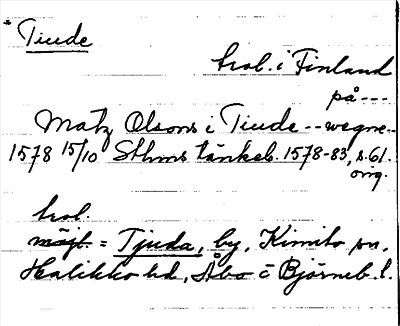 * Tiude
trol. i Finland
på ---
Matz Olsons i Tiude -- wegne --
1578 15/10 Sthms tänkeb. 1578-83, s. 61.
orig.
trol.
möjl. = Tjuda, by, Kimito sn,
Halikko hd, Åbo o Björneb. l.